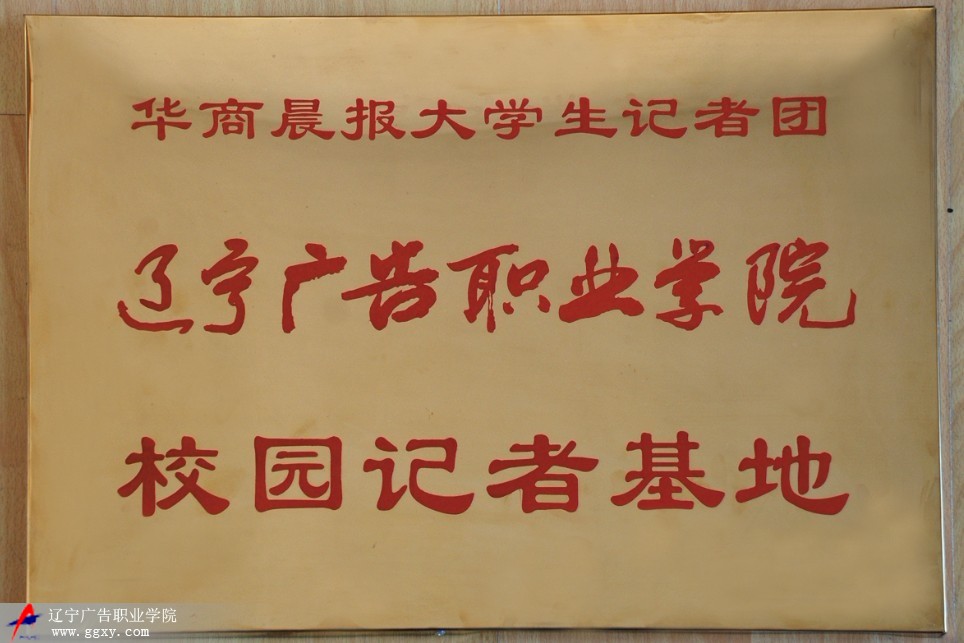 华商晨报大学生记者团
辽宁广告职业学院
校园记者基地
辽宁广告职业学院
www.ggxy.com